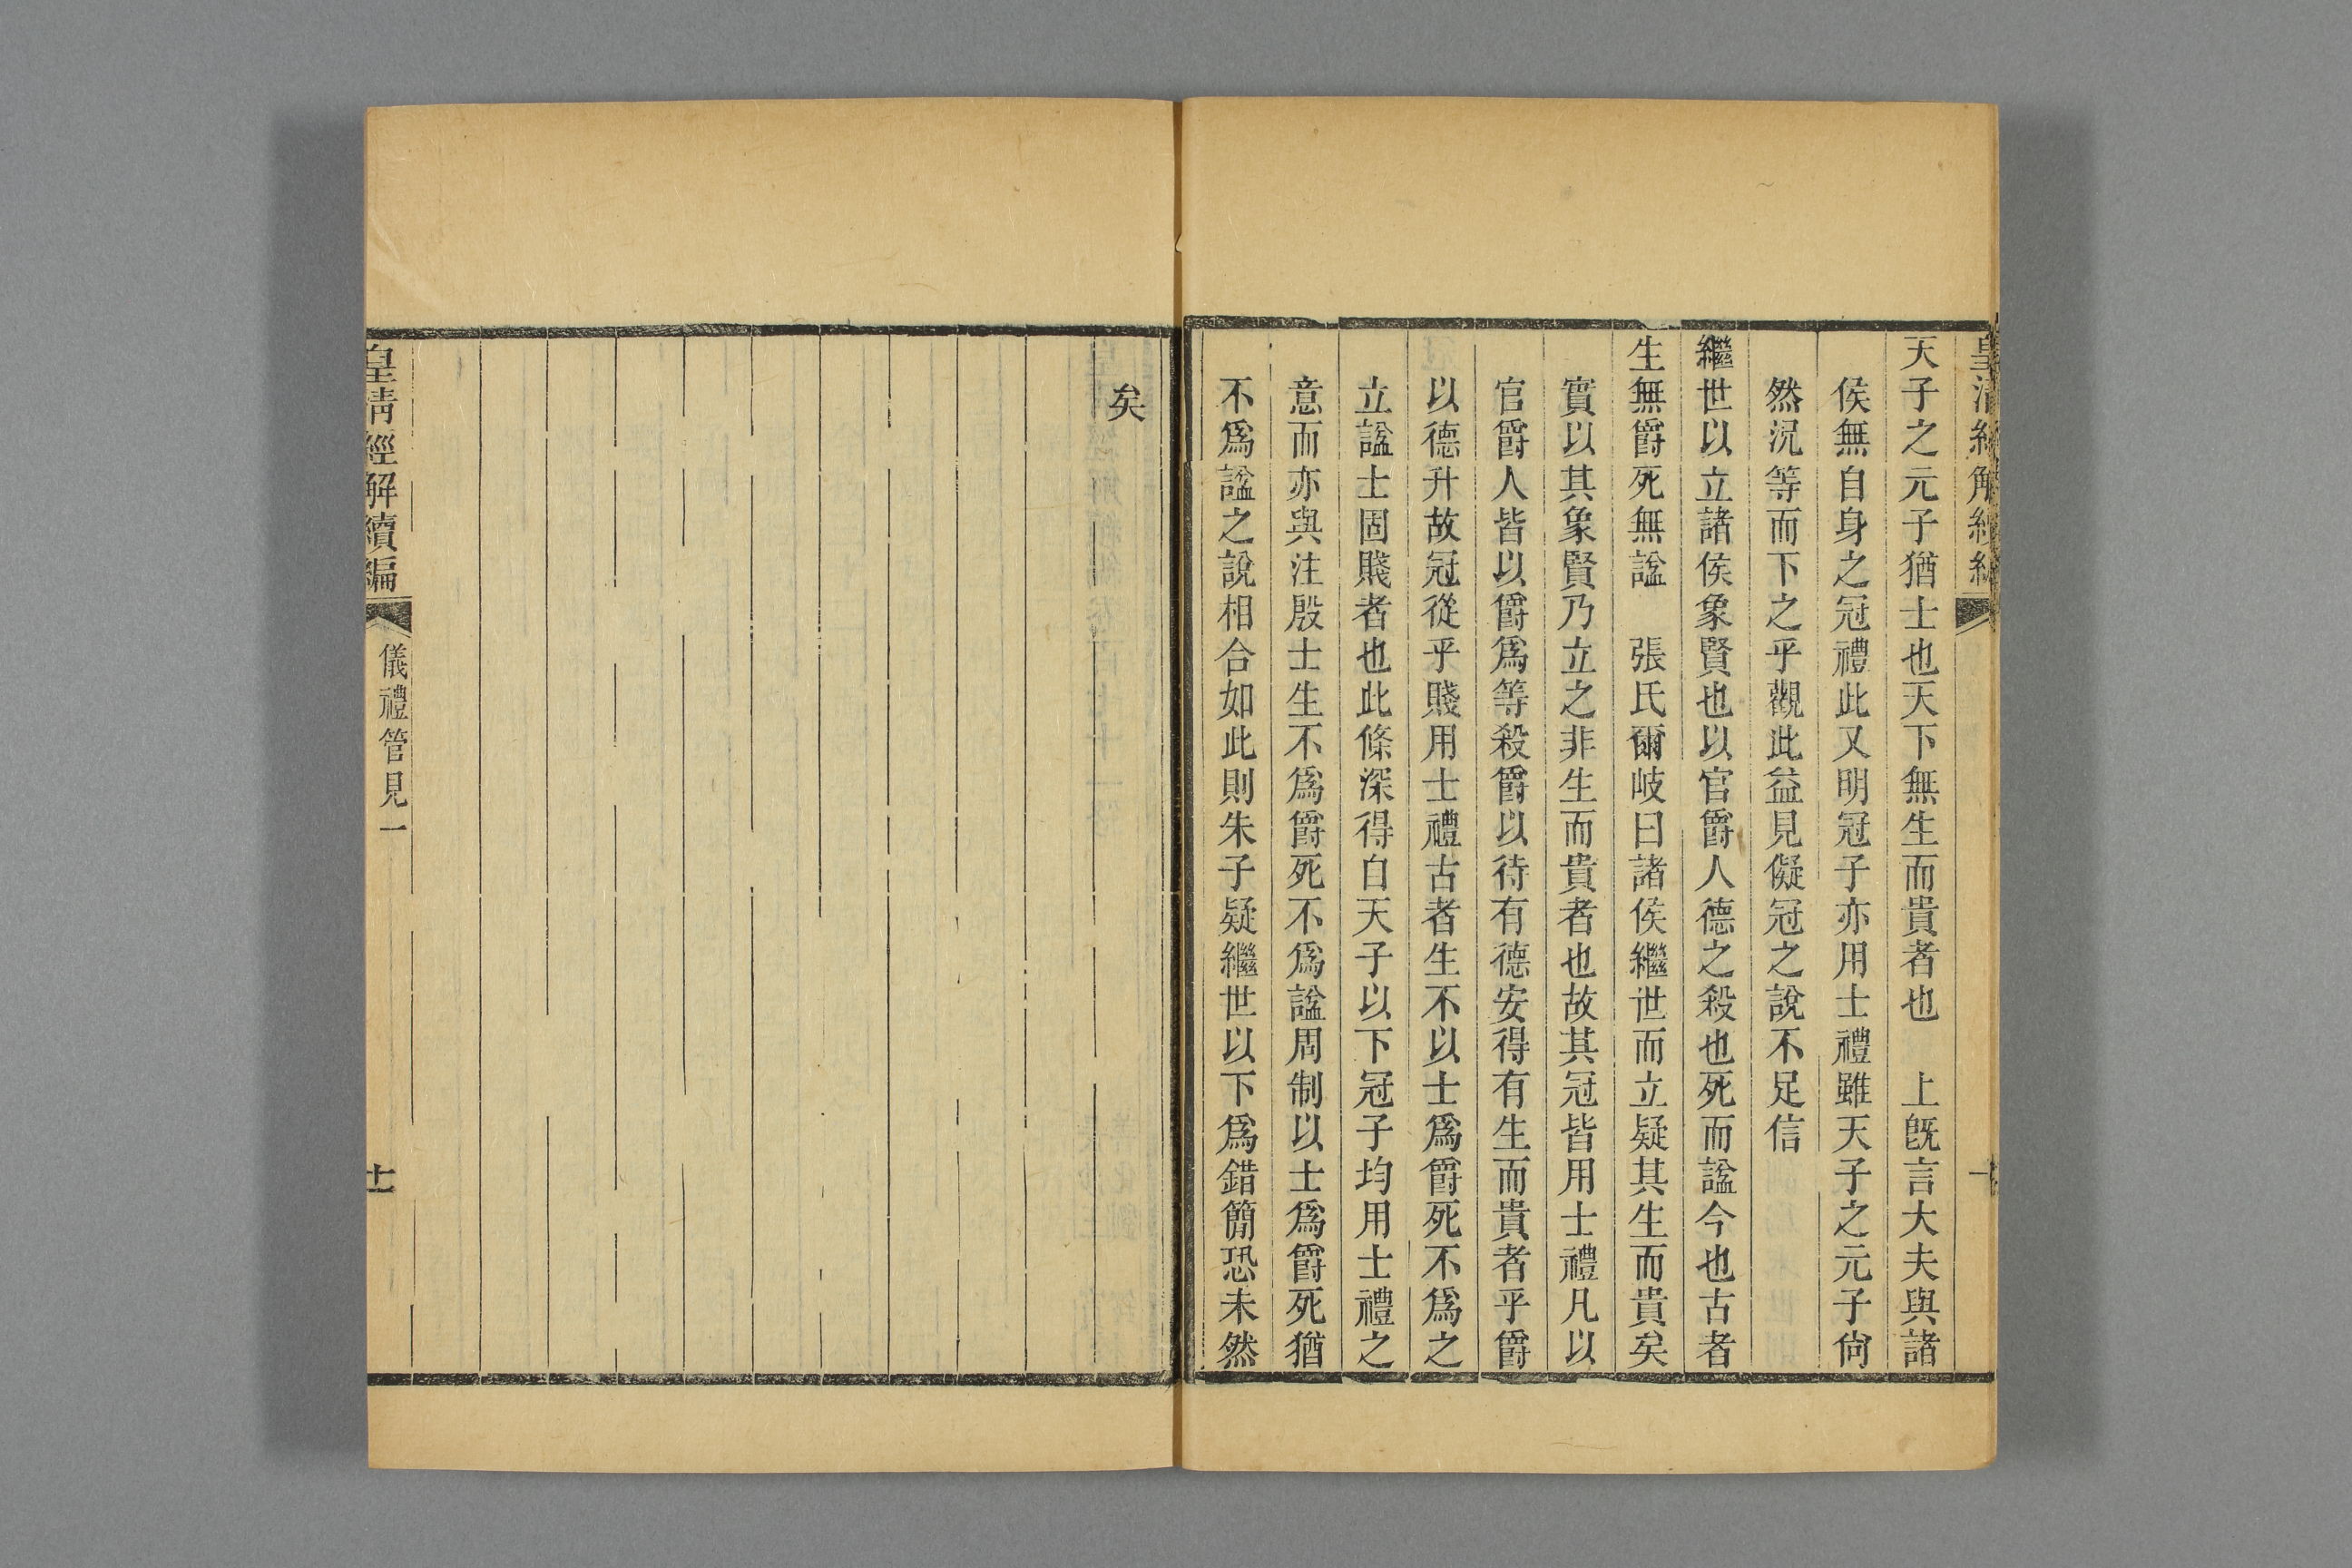 天子之元子猶士也天下無生而貴者也　上旣言大夫與諸
侯無自身之冠禮此又明冠子亦用士禮雖天子之元子尙
然況等而下之乎觀此益見儗冠之說不足信
繼世以立諸侯象賢也以官爵人德之殺也死而諡今也古者
生無爵死無諡　張氏爾岐曰諸侯繼世而立疑其生而貴矣
實以其象賢乃立之非生而貴者也故其冠皆用士禮凡以
官爵人皆以爵爲等殺爵以待有德安得有生而貴者乎爵
以德升故冠從乎賤用士禮古者生不以士爲爵死不爲之
立諡士固賤者也此條深得自天子以下冠子均用士禮之
意而亦與注殷士生不爲爵死不爲諡周制以士爲爵死猶
不爲諡之說相合如此則朱子疑繼世以下爲錯簡恐未然
矣
皇清經解續編
儀禮管見一
十一